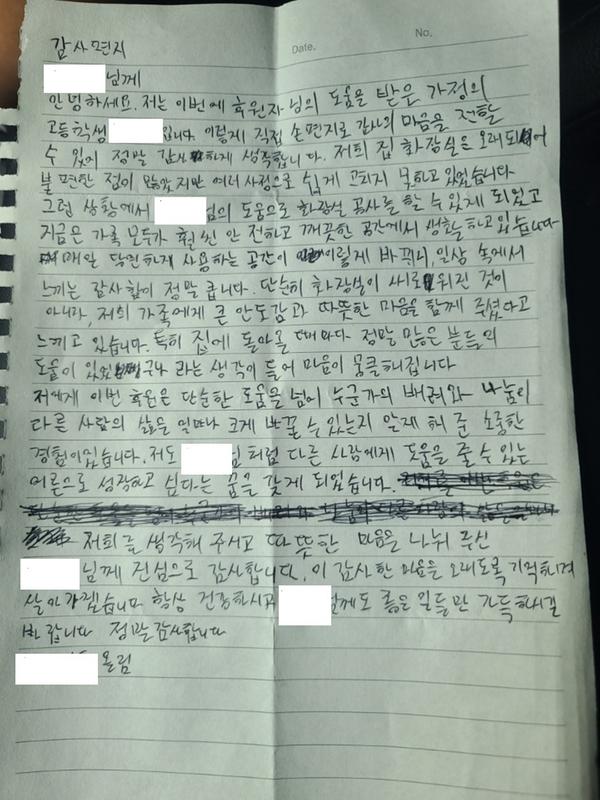 No.
Date.
감사편지
님께
안녕하세요. 저는 이번에 후원자님의 도움을 받은 가정의
고등학생 입니다. 이렇게 직접 손편지로 감사의 마음을 전할
수 있어 정말 감사하게 생각합니다. 저희 집 화장실은 오래되어
불편한 점이 많았지만 여러 사정으로 쉽게 고치지 못하고 있었습니다
그런 상황에서 님의 도움으로 화장실 공사를 할 수 있게 되었고
지금은 가족 모두가 훨씬 안전하고 깨끗한 공간에서 생활하고 있습니다
매일 당연하게 사용하는 공간이 이렇게 바뀌니, 일상 속에서
느끼는 감사함이 정말 큽니다. 단순히 화장실이 새로워진 것이
아니라, 저희 가족에게 큰 안도감과 따뜻한 마음을 함께 주셨다고
느끼고 있습니다. 특히 집에 돌아올 때마다 정말 많은 분들의
도움이 있었구나 라는 생각이 들어 마음이 뭉클해집니다
저에게 이번 후원은 단순한 도움을 넘어 누군가의 배려와 나눔이
다른 사람의 삶을 얼마나 크게 바꿀 수 있는지 알게 해 준 소중한
경험이었습니다. 저도 님처럼 다른 사람에게 도움을 줄 수 있는
어른으로 성장하고 싶다는 꿈을 갖게 되었습니다.
저희를 생각해 주시고 따뜻한 마음을 나눠 주신
님께 진심으로 감사합니다. 이 감사한 마음을 오래도록 기억하며
살아가겠습니다 항상 건강하시고 님께도 좋은 일들만 가득하시길
바랍니다 정말 감사합니다
올림